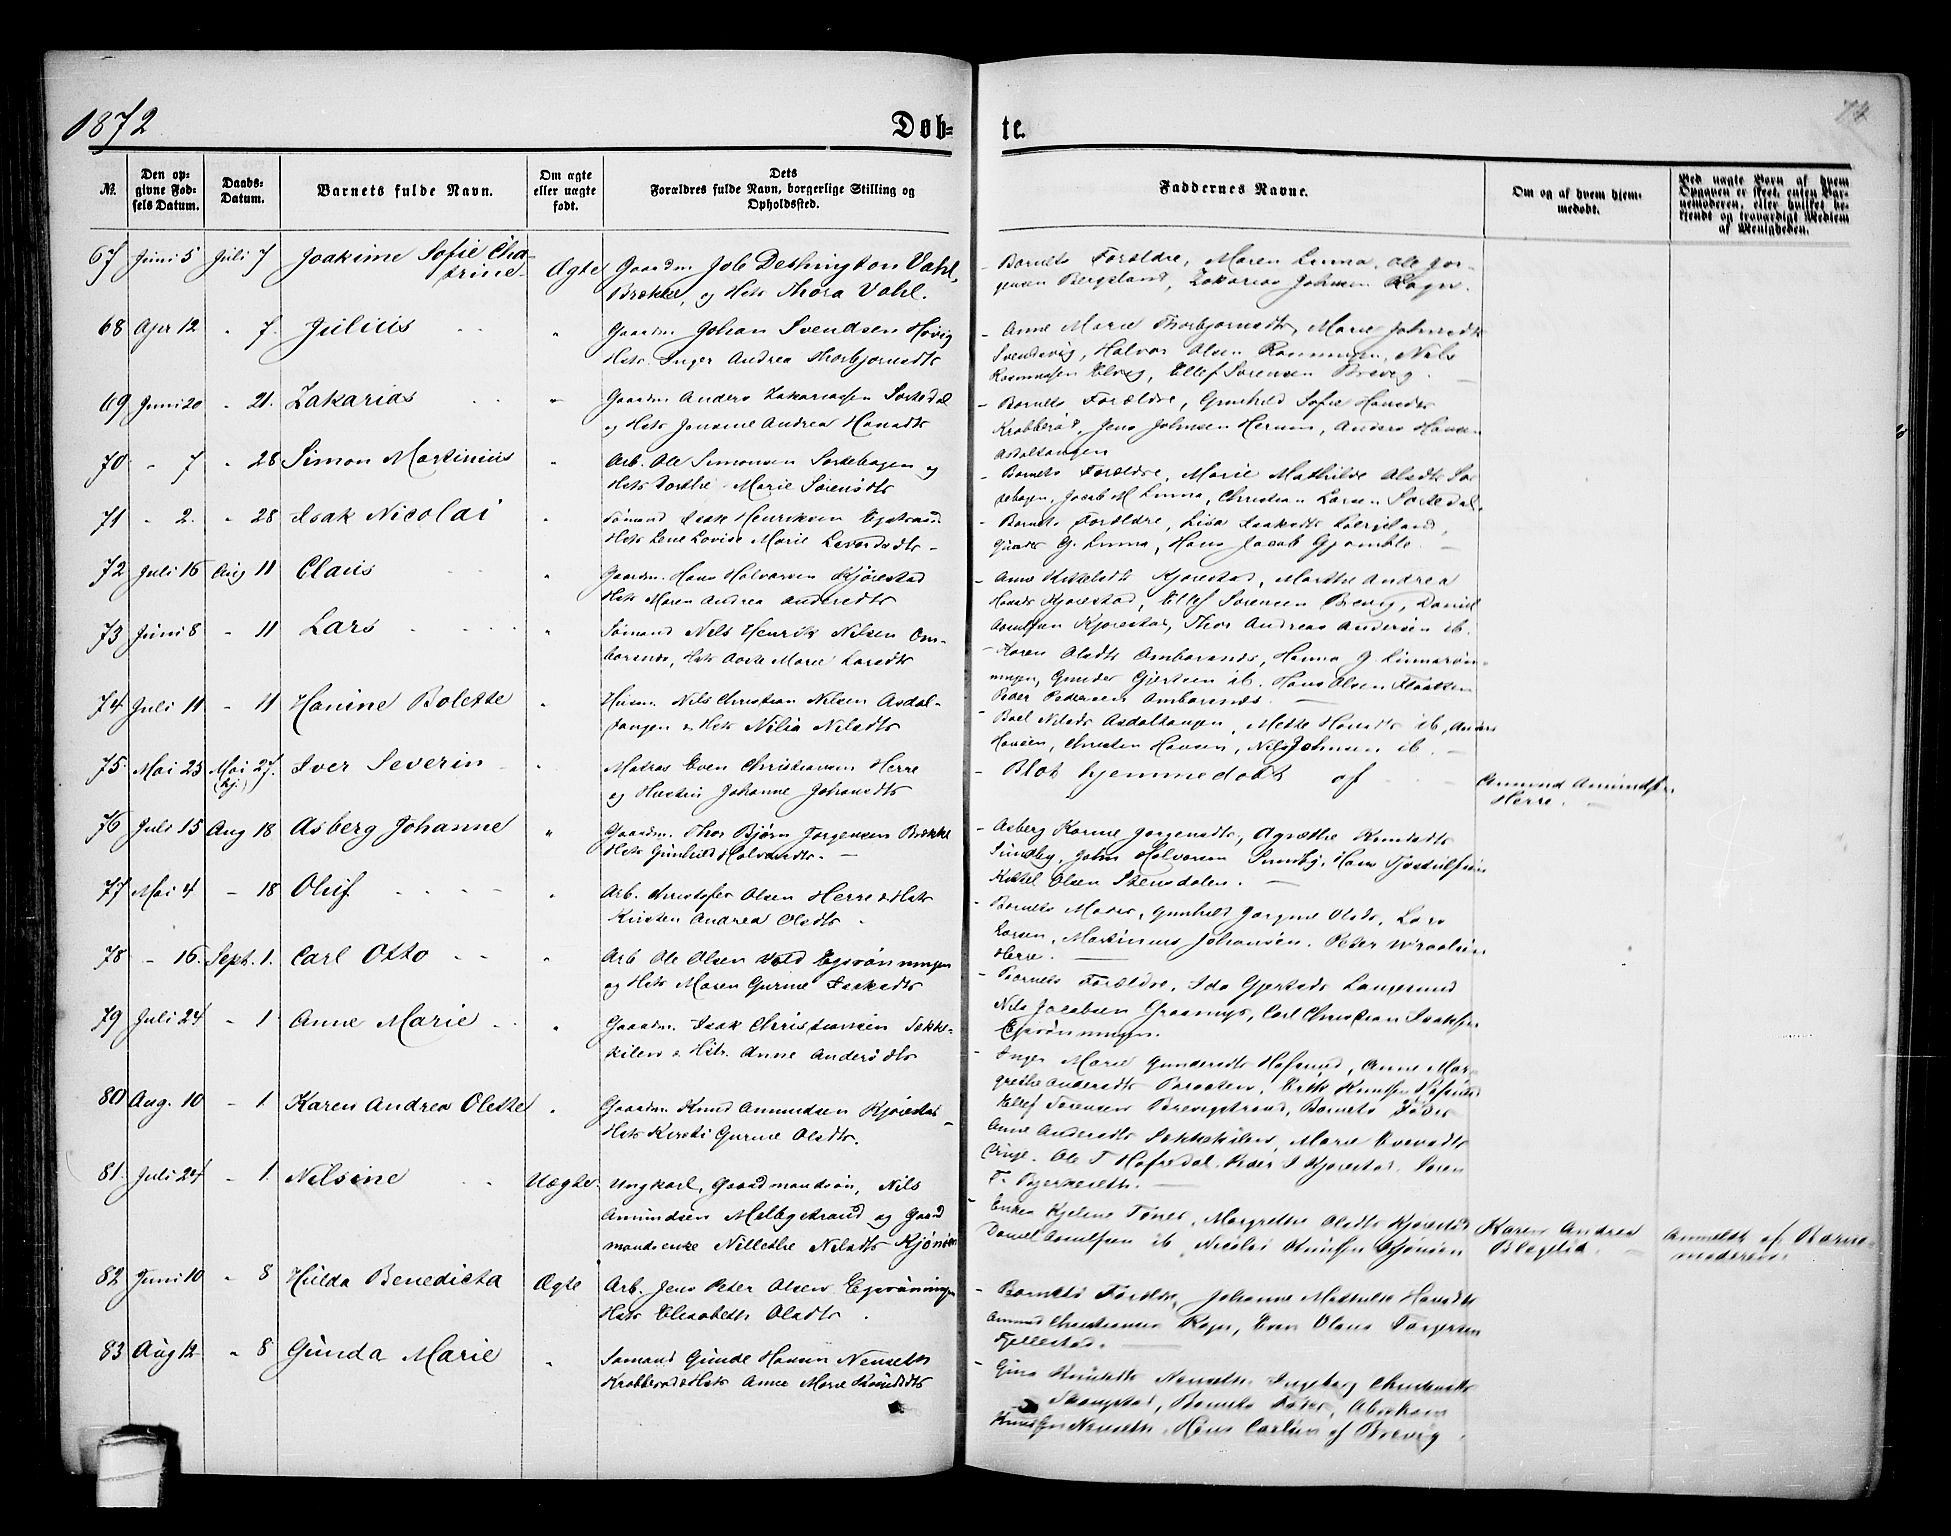 1872
Døb-
te.
№.
Den op-
givne Fød-
sels Datum.
Daabs-
Datum.
Barnets fulde Navn.
Om ægte
eller uægte
født.
Dets
Forældres fulde Navn, borgerlige Stilling og
Opholdssted.
Faddernes Navne.
Om og af hvem hjem-
medøbt.
Ved uægte Børn af hvem
Opgaven er skeet, enten Bar-
nemoderen, eller hvilket be-
kjendt og troværdigt Medlem
af Menigheden.
67 Juni 5 Juli 7 Joakime Sofie Cha-
trine Ægte Gaardm. Job Dethington Vahl,
Brække, og Hstr Thora Vahl.
- Barnets Forældre, Maren Linna, Ole Jør-
gensen Bergsland, Zakarias Johnsen Rogn.
68 Apr 12 " 7. Julius " Gaardm. Johan Svendsen Høvig
Hstr. Inger Andrea Thorbjørnsdtr
- Anne Marie Thorbjørnsdtr, Marie Johnsdtr
Svendsvig, Halvor Olsen Rasmussen, Nils
Rasmussen Elvig, Ellef Sørensen Brevig.
69 Juni 20 " 21. Zakarias " Gaardm Anders Zakariassen Sortedal
og Hstr Jonine Andrea Hansdtr
- Barnets Forældre, Gunhild Sofie Hansdtr
Krabberød, Jens Johnsen Herum, Anders Hansen
Asdaltangen
70 " 7 " 28 Simon Martinius " Arb. Ole Simonsen Sortebogen og
Hstr Dorthe Marie Sørensdtr
- Barnets Forældre, Marie Mathilde Olsdtr Sor-
tebogen, Jacob M Linna, Christian Larsen Sortedal.
71 " 2. " 28 Isak Nicolai " Sømand Isak Henriksen
Hstr Lene Lovise Marie Larsdtr
- Barnets Forældre, Lisa Isaksdtr
G. Linna, Hans Jacob Gjømle.
72 Juli 16 Aug 11 Claus " Gaardm. Hans Halvorsen Kjørestad
Hstr Maren Andrea Andersdtr
- Anne Kittelsdtr Kjørestad, Marthe Andrea
Hansdtr Kjørestad, Ellef Sørensen Brevig, Daniel
Kjørestad, Thor Andreas Andersen ib.
73 Juni 8 " 11 Lars " Sømand Nils Henrik Nilsen Om-
borsnes, Hstr Aaste Marie Larsdtr
- Karen Olsdtr Omborsnes, Hanna G. Linnarøn-
ningen, Gunder Gjertsen ib. Hans Olsen
Peder Pedersen Omborsnes.
74 Juli 11 " 11 Hanine Bolette " Husm. Nils Christian Nilsen Asdal-
tangen & Hstr Nilia Nilsdtr
- Boel Nilsdtr Asdaltangen, Mette Hansdtr ib, Anders
Hansen, Christen Hansen, Nils Johnsen ib.
75 Mai 25 Mai 27. (hj.) Iver Severin " Matros Even Christiansen Herre
og Hustru Johanne Johansdtr
- Blot hjemmedøbt af Amund Amunds.
Herre.
76 Juli 15 Aug 18 Asberg Johanne " Gaardm. Thor Bjørn Jørgensen Brække
Hstr Gunhild Halvorsdtr.
- Asberg Karine Jørgensdtr, Agnethe Knudsdtr
Sundby, John Halvorsen Sundby, Hans
Kittel Olsen Stensdalen.
77 Mai 4 " 18 Oluf " Arb. Christofer Olsen Herre & Hstr
Kirsten Andrea Olsdtr.
- Barnets Moder, Gunhild Jørgine Olsdtr, Lars
Larsen, Martinius Johansen, Peter Wraalsen
Herre.
78 " 16. Sept. 1. Carl Otto " Arb Ole Olsen Egsrønningen
og Hstr Maren Gurine Isaksdtr
- Barnets Forældre, Ida Gjertsdtr Langesund
Nils Jacobsen, Carl Christian Isaksen
Egsrønningen.
79 Juli 24 " 1 Anne Marie " Gaardm. Isak Christiansen Søkks-
kilen & Hstr. Anne Andersdtr
- Inger Marie Gundersdtr Hafsund, Anne Mar-
grethe Andersdtr, Erik Knudsen Hafsund
Ellef Sørensen Brevigstrand, Barnets Fader
80 Aug. 10 " 1 Karen Andrea Olette " Gaardm Knud Amundsen Kjørestad
Hstr Kirsti Gurine Olsdtr.
Anne Andersdtr Søkkskilen, Marie Evensdtr
Ole T Hafredal, Peder I Kjørestad, Søren
T. Bjerkeseth.
81. Juli 24 " 1. Nilsine Uægte. Ungkarl, Gaardmandsøn, Nils
Amundsen Melbystrand og Gaard
mandsenke Nillethe Nilsdtr Kjønøen
- Enken Kjeline Tønes, Margrethe Olsdtr Kjørestad
Daniel ib, Nicolai Knudsen Kjønøen
Karen Andrea
Anmeldt af Barne-
moderen.
82 Juni 10 " 8 Hulda Benedicta Ægte Arb. Jens Peter Olsen Egsrønningen
Hstr Elisabeth Olsdtr.
- Barnets Forældre, Johanne Mathilde Hansdtr
Amund Christiansen Rogn, Even Olaus Torgersen
Fjellestad.
83 Aug 12 " 8 Gunda Marie " Sømand Gunde Hansen Nenseth
Krabberød & Hstr Anne Marie Knudsdtr
- Gina Knudsdtr Nenseth, Ingeborg
Skougstad, Barnets Fader, Abraham
Knudsen Nenseth, Hans Carlsen af Brevig.